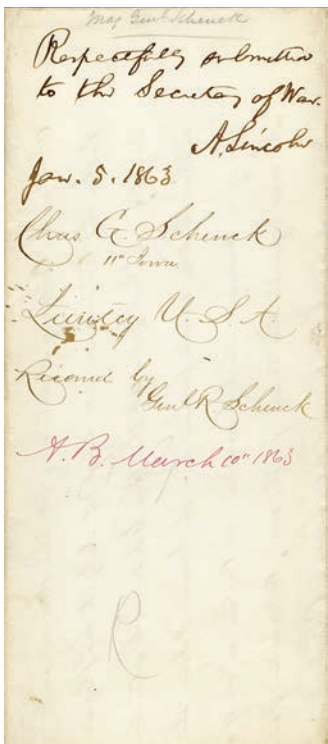 Maj Genl Schenck
Respectfully submitted
to the Secretary of War.
A. Lincoln
Jan. 5. 1863.
Chas G. Schenck
11" Iowa.
Lieutcy U. S. A.
Recomd by
Genl R Schenck
A. B. March 10" 1863
R